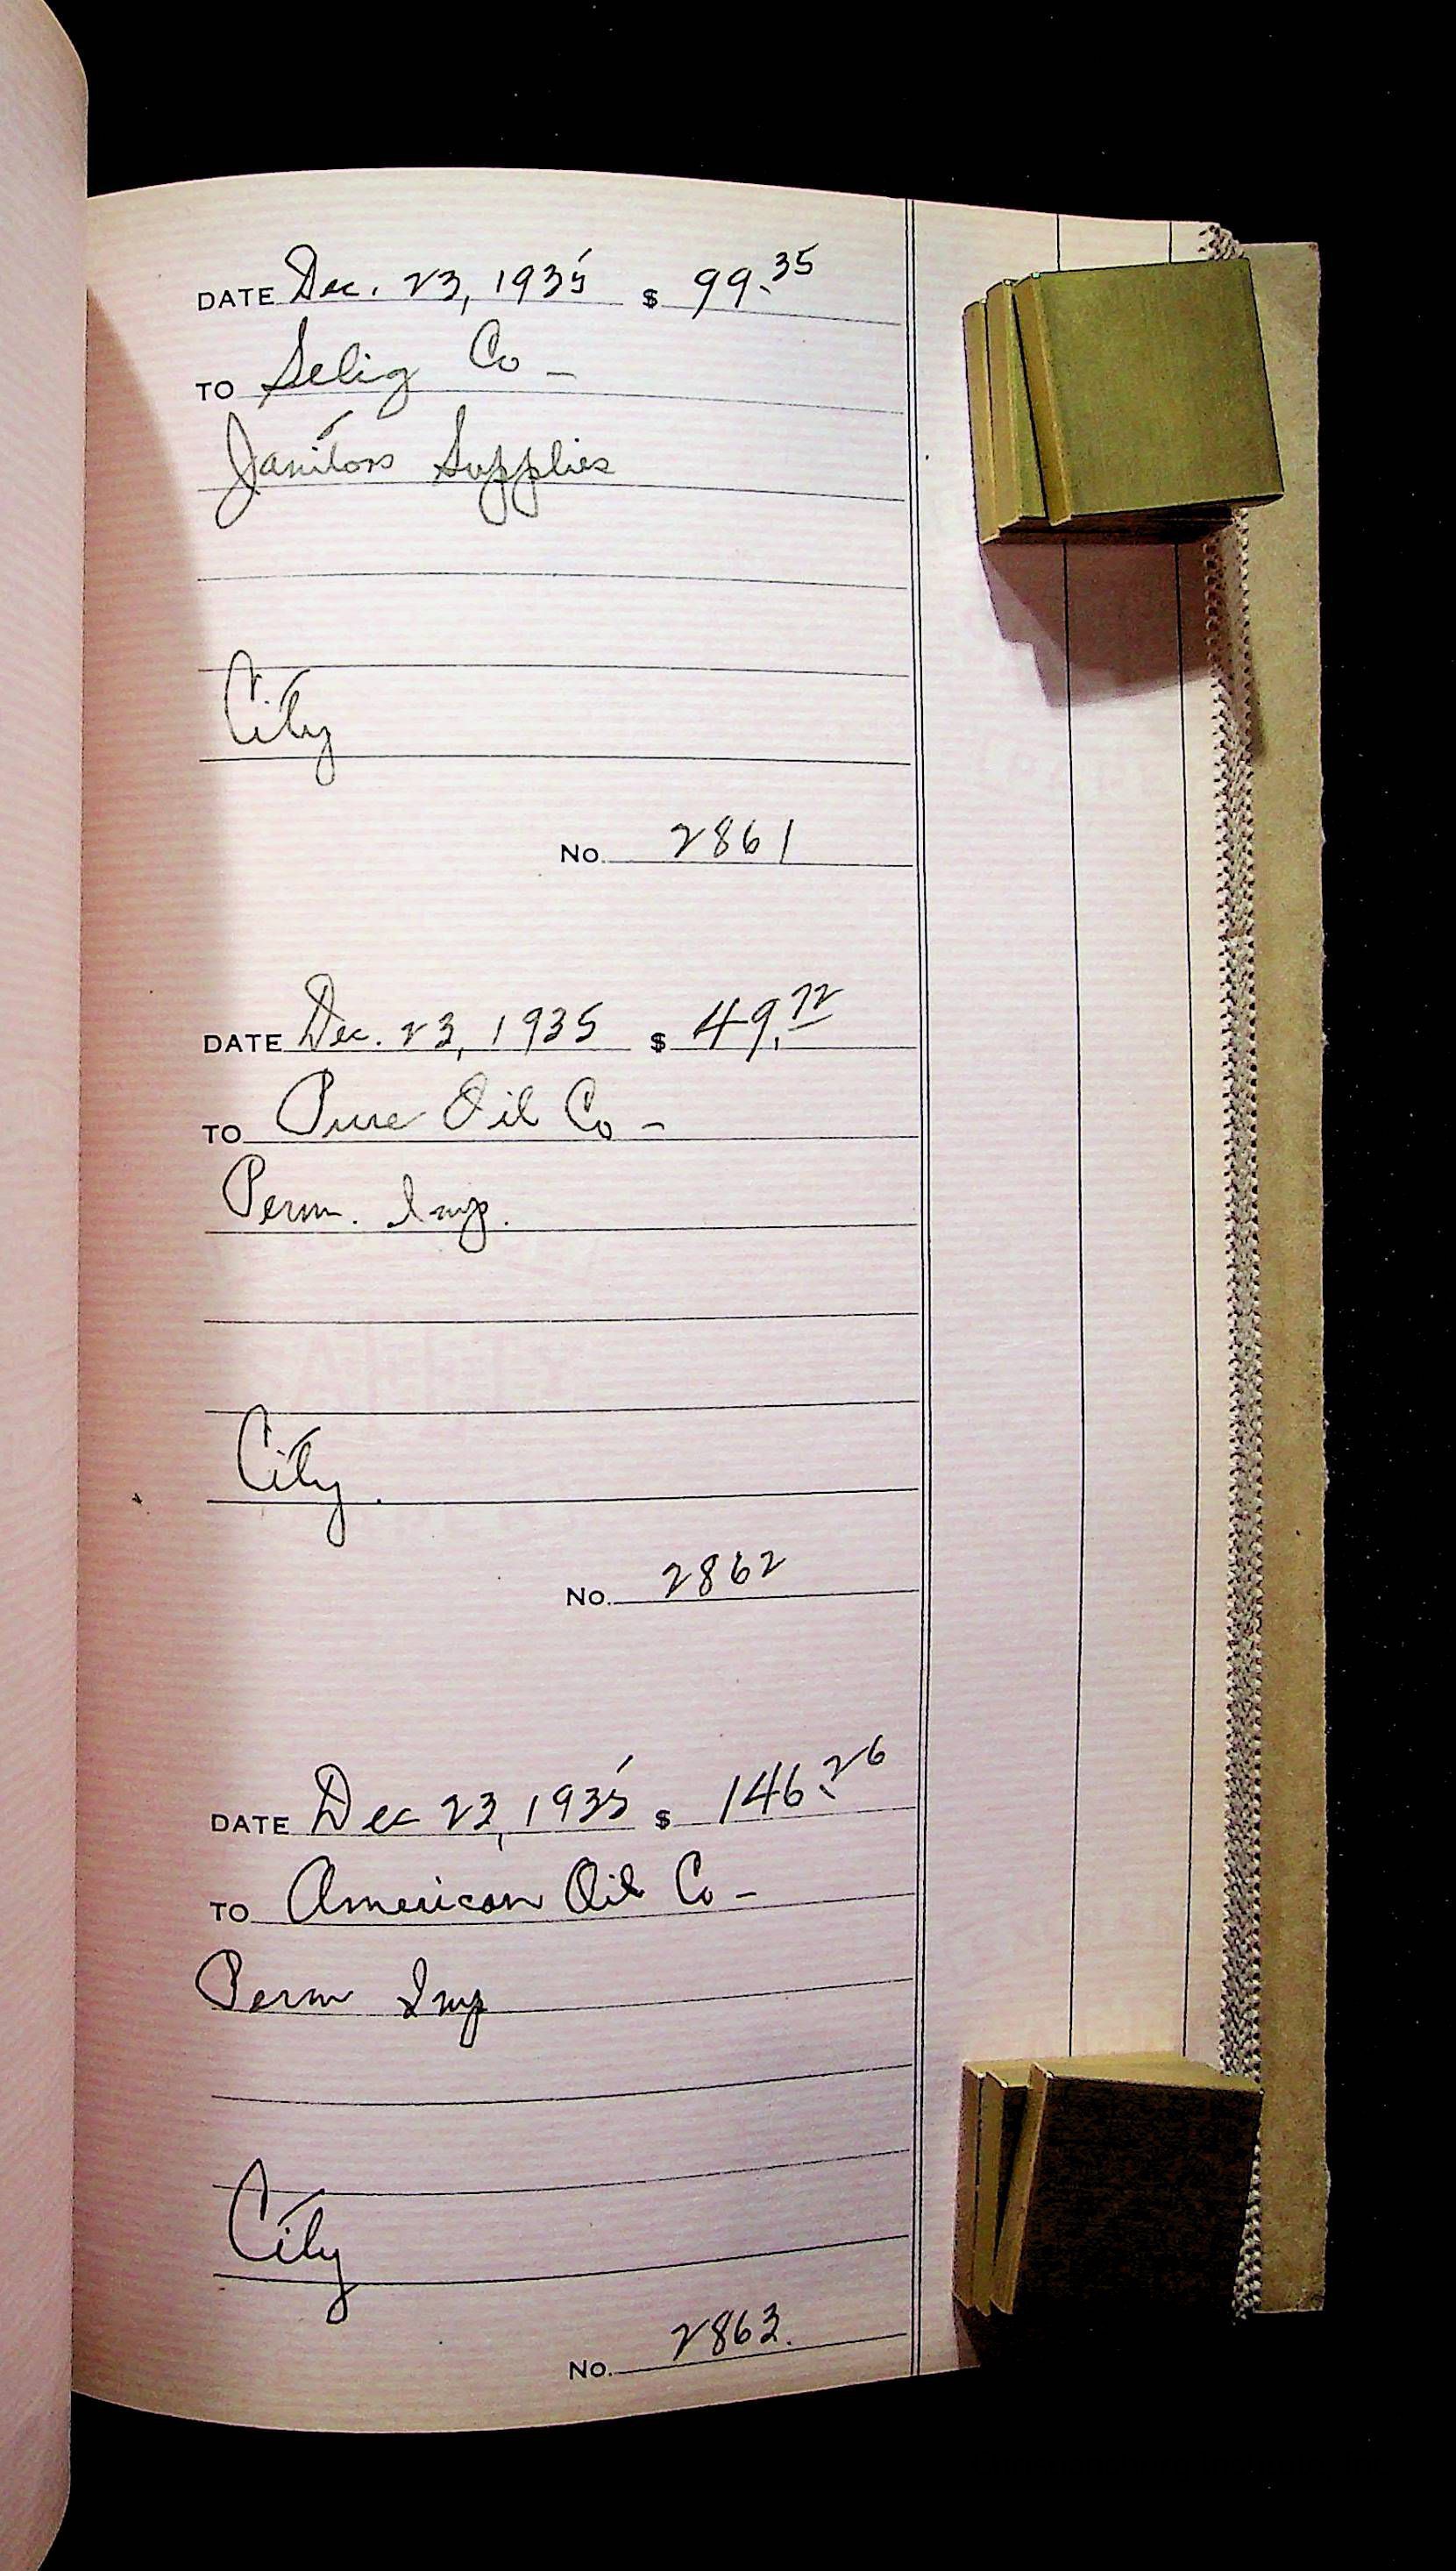 DATE Dec. 23, 1935 $ 99.35
TO Selig Co -
Janitors Supplies
City
No. 2861
DATE Dec. 23, 1935 $ 49.72
TO Pure Oil Co -
Perm. Imp.
City.
No. 2862
DATE Dec 23, 1935 $ 146.26
TO American Oil Co -
Perm Imp
City
No. 2863.